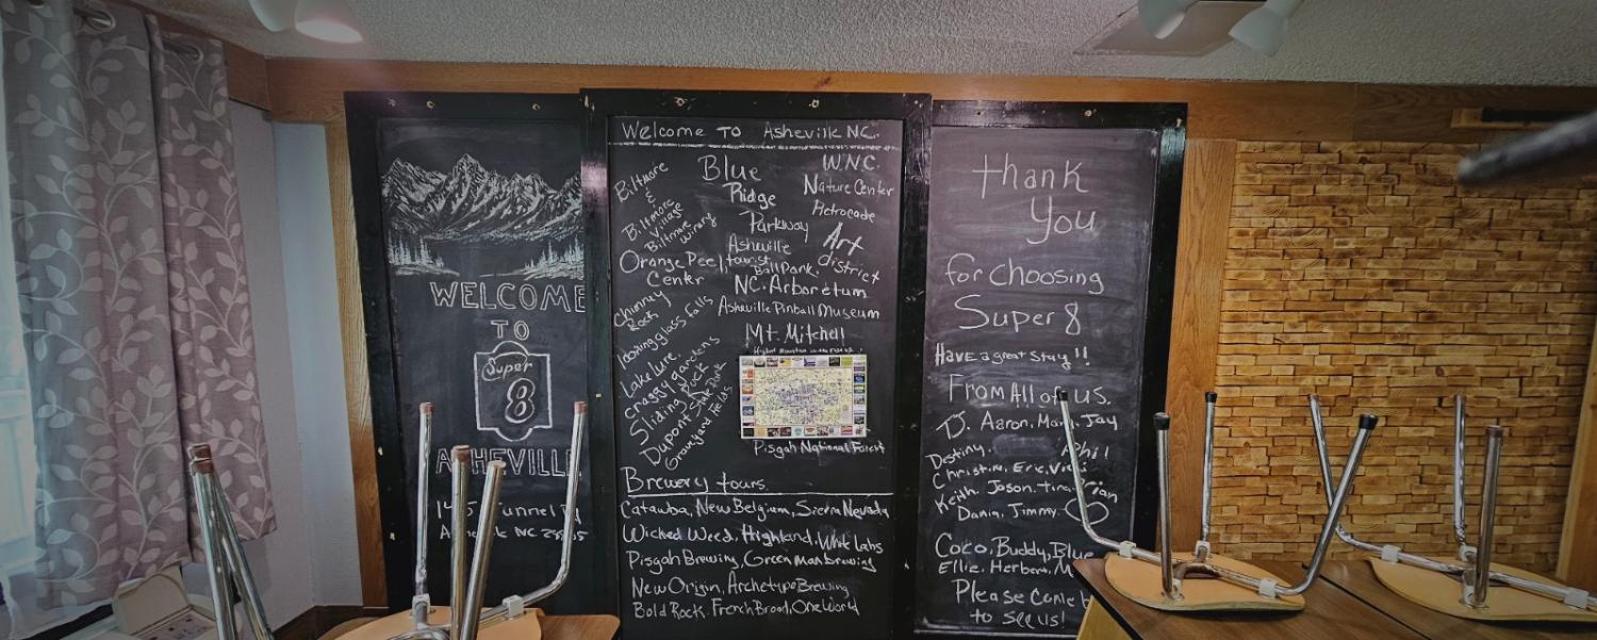 WELCOME
TO
Super
8
Tunnel
NC
Welcome TO Asheville NC.
Biltmore
&
Biltmore
Village
Biltmore
winery
Orange Peel
Center
Chimney
Rock
looking glass falls
Lake lure.
craggy gardens
Sliding Rock
Dupont State Park
Graveyard fields
Blue
Ridge
Parkway
Asheville
tourist
Ball Park.
NC. Arboretum
Asheville Pinball Museum
Mt. Mitchell
W.N.C.
Nature Center
Retrocade
Art
district
Pisgah National Forest
Brewery tours.
Catawba, New Belgium, Sierra Nevada
Wicked Weed, Highland, White labs
Pisgah Brewing, Green man brewing
New Origin, Archetype Brewing
Bold Rock, French Broad, One World
thank
You
for choosing
Super 8
Have a great stay!!
From All of us.
D. Aaron, Mary, Jay
Destiny. Phil
Christina, Eric, Vicki
Keith. Jason. tina.
Dania, Jimmy.
Coco, Buddy, Blue
Ellie, Herbert,
Please Come
to see us!